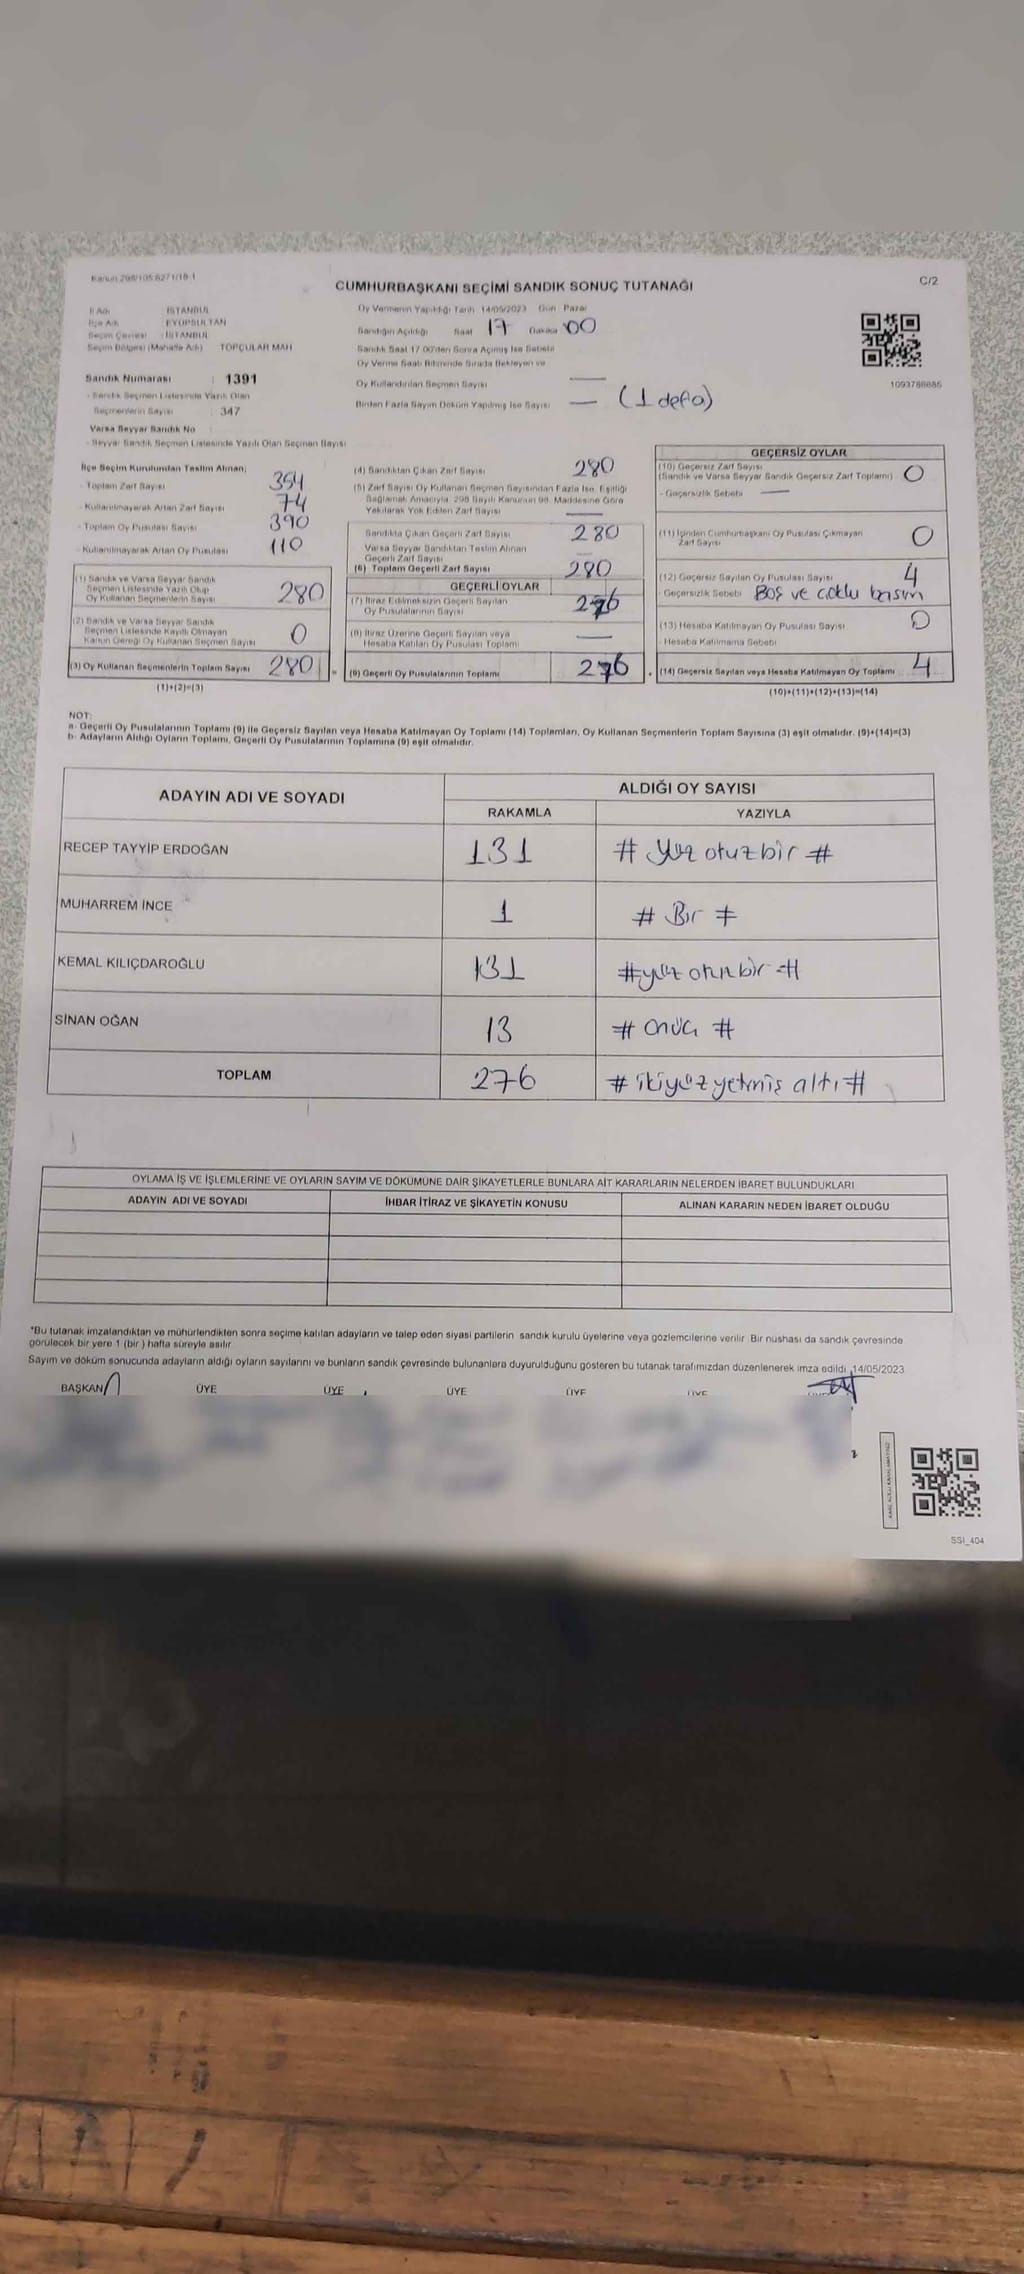 Kanun 298/105 6271/18-1
CUMHURBAŞKANI SEÇİMİ SANDIK SONUÇ TUTANAĞI
C/2
İl Adı : İSTANBUL
İlçe Adı : EYÜPSULTAN
Seçim Çevresi : İSTANBUL
Seçim Bölgesi (Mahalle Adı) TOPÇULAR MAH
Sandık Numarası : 1391
- Sandık Seçmen Listesinde Yazılı Olan
Seçmenlerin Sayısı : 347
Varsa Seyyar Sandık No
- Seyyar Sandık Seçmen Listesinde Yazılı Olan Seçmen Sayısı
Oy Vermenin Yapıldığı Tarih 14/05/2023 Gün Pazar
Sandığın Açıldığı Saat 17 Dakika 00
Sandık Saat 17.00'den Sonra Açılmış İse Sebebi
Oy Verme Saati Bitiminde Sırada Bekleyen ve
Oy Kullandırılan Seçmen Sayısı —
Birden Fazla Sayım Döküm Yapılmış İse Sayısı — (1 defa)
1093788885
İlçe Seçim Kurulundan Teslim Alınan;
- Toplam Zarf Sayısı 354
- Kullanılmayarak Artan Zarf Sayısı 74
- Toplam Oy Pusulası Sayısı 390
- Kullanılmayarak Artan Oy Pusulası 110
(1) Sandık ve Varsa Seyyar Sandık
Seçmen Listesinde Yazılı Olup
Oy Kullanan Seçmenlerin Sayısı 280
(2) Sandık ve Varsa Seyyar Sandık
Seçmen Listesinde Kayıtlı Olmayan
Kanun Gereği Oy Kullanan Seçmen Sayısı 0
(3) Oy Kullanan Seçmenlerin Toplam Sayısı 280
(1)+(2)=(3)
(4) Sandıktan Çıkan Zarf Sayısı 280
(5) Zarf Sayısı Oy Kullanan Seçmen Sayısından Fazla İse, Eşitliği
Sağlamak Amacıyla, 298 Sayılı Kanunun 98. Maddesine Göre
Yakılarak Yok Edilen Zarf Sayısı —
Sandıkta Çıkan Geçerli Zarf Sayısı 280
Varsa Seyyar Sandıktan Teslim Alınan
Geçerli Zarf Sayısı —
(6) Toplam Geçerli Zarf Sayısı 280
GEÇERLİ OYLAR
(7) İtiraz Edilmeksizin Geçerli Sayılan
Oy Pusulalarının Sayısı 276
(8) İtiraz Üzerine Geçerli Sayılan veya
Hesaba Katılan Oy Pusulası Toplamı —
= (9) Geçerli Oy Pusulalarının Toplamı 276
GEÇERSİZ OYLAR
(10) Geçersiz Zarf Sayısı
(Sandık ve Varsa Seyyar Sandık Geçersiz Zarf Toplamı) 0
- Geçersizlik Sebebi —
(11) İçinden Cumhurbaşkanı Oy Pusulası Çıkmayan
Zarf Sayısı 0
(12) Geçersiz Sayılan Oy Pusulası Sayısı 4
- Geçersizlik Sebebi Boş ve coklu basım
(13) Hesaba Katılmayan Oy Pusulası Sayısı 0
- Hesaba Katılmama Sebebi
(14) Geçersiz Sayılan veya Hesaba Katılmayan Oy Toplamı 4
(10)+(11)+(12)+(13)=(14)
NOT:
a- Geçerli Oy Pusulalarının Toplamı (9) ile Geçersiz Sayılan veya Hesaba Katılmayan Oy Toplamı (14) Toplamları, Oy Kullanan Seçmenlerin Toplam Sayısına (3) eşit olmalıdır. (9)+(14)=(3)
b- Adayların Aldığı Oyların Toplamı, Geçerli Oy Pusulalarının Toplamına (9) eşit olmalıdır.
ADAYIN ADI VE SOYADI ALDIĞI OY SAYISI
RAKAMLA YAZIYLA
RECEP TAYYİP ERDOĞAN 131 # yüz otuzbir #
MUHARREM İNCE 1 # Bir #
KEMAL KILIÇDAROĞLU 131 # yüz otuzbir #
SİNAN OĞAN 13 # onüç #
TOPLAM 276 # ikiyüz yetmiş altı #
OYLAMA İŞ VE İŞLEMLERİNE VE OYLARIN SAYIM VE DÖKÜMÜNE DAİR ŞİKAYETLERLE BUNLARA AİT KARARLARIN NELERDEN İBARET BULUNDUKLARI
ADAYIN ADI VE SOYADI İHBAR İTİRAZ VE ŞİKAYETİN KONUSU ALINAN KARARIN NEDEN İBARET OLDUĞU
*Bu tutanak imzalandıktan ve mühürlendikten sonra seçime katılan adayların ve talep eden siyasi partilerin sandık kurulu üyelerine veya gözlemcilerine verilir. Bir nüshası da sandık çevresinde
görülecek bir yere 1 (bir) hafta süreyle asılır
Sayım ve döküm sonucunda adayların aldığı oyların sayılarını ve bunların sandık çevresinde bulunanlara duyurulduğunu gösteren bu tutanak tarafımızdan düzenlenerek imza edildi. 14/05/2023
BAŞKAN ÜYE ÜYE ÜYE ÜYE ÜYE
SSI_404